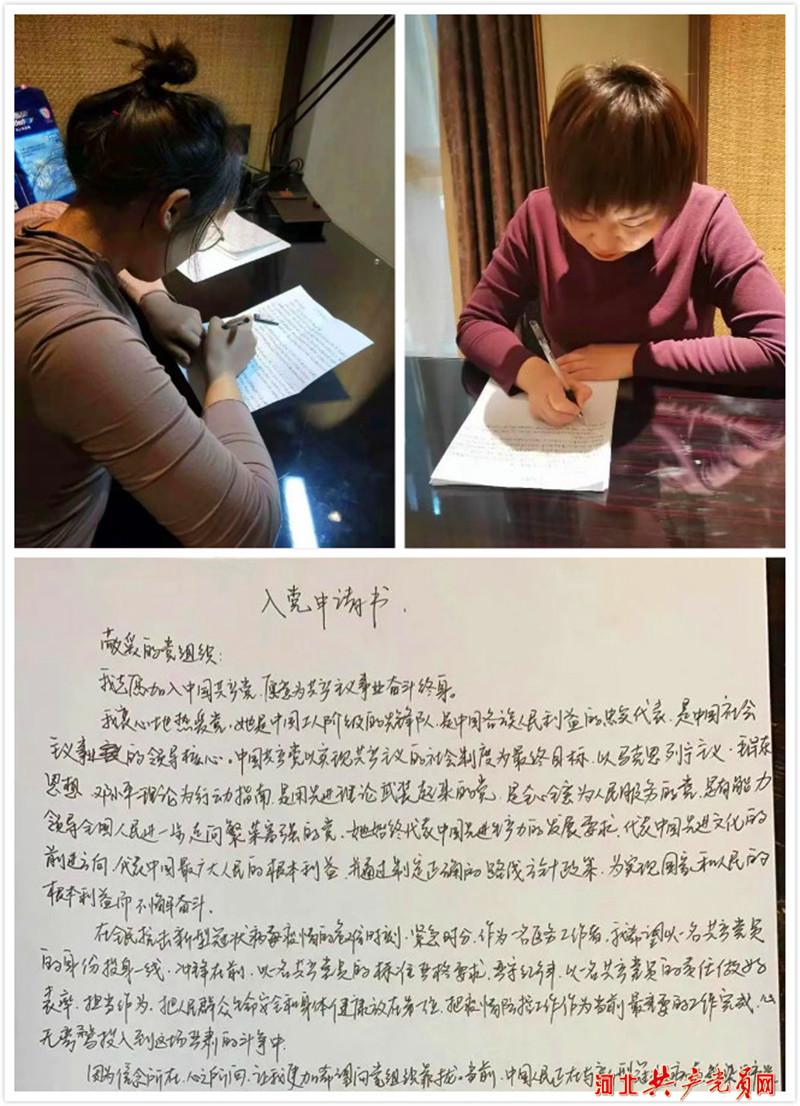 入党申请书.
敬爱的党组织:
我志愿加入中国共产党,愿意为共产主义事业奋斗终身。
我衷心地热爱党,她是中国工人阶级的先锋队,是中国各族人民利益的忠实代表,是中国社会
主义事业的领导核心。中国共产党以实现共产主义的社会制度为最终目标,以马克思列宁主义、毛泽东
思想、邓小平理论为行动指南,是用先进理论武装起来的党,是全心全意为人民服务的党,是有能力
领导全国人民进一步走向繁荣富强的党。她始终代表中国先进生产力的发展要求,代表中国先进文化的
前进方向,代表中国最广大人民的根本利益,并通过制定正确的路线方针政策,为实现国家和人民的
根本利益而不懈奋斗。
在全民抗击新型冠状病毒疫情的危难时刻,紧急时分,作为一名医务工作者,我希望以一名共产党员
的身份投身一线,冲锋在前,以一名共产党员的标准严格要求,严守纪律,以一名共产党员的责任做好
表率,担当作为,把人民群众生命安全和身体健康放在第一位,把疫情防控工作作为当前最重要的工作完成,心
无旁骛投入到这场严肃的斗争中。
因为信念所在,心之所向,让我更加希望向党组织靠拢。当前,中国人民正在与新型冠
河北共产党员网